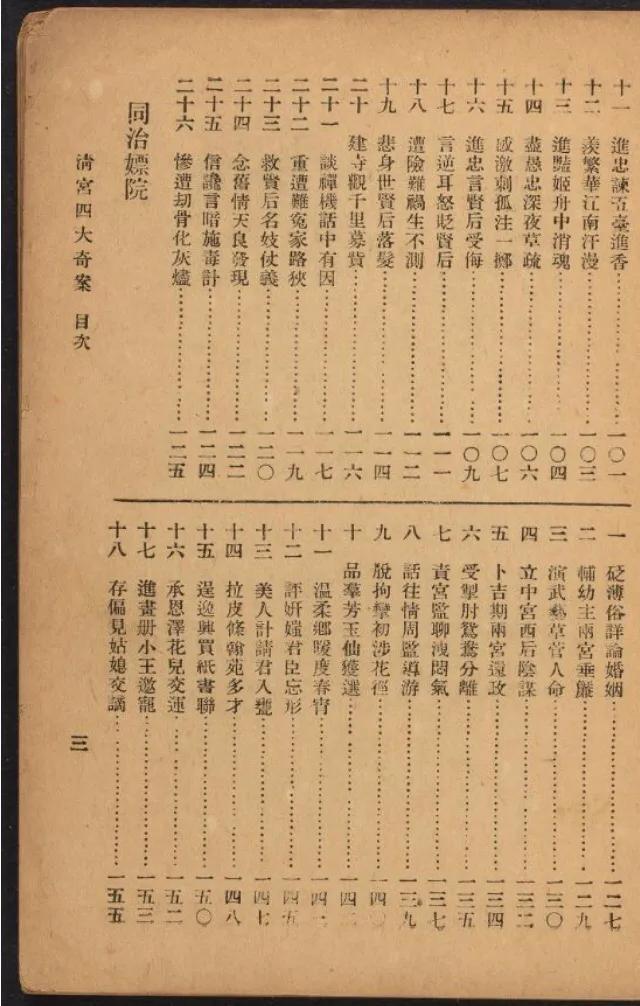 十一 進忠諫五臺進香……一〇一
十二 羨繁華江南汗漫……一〇三
十三 進豔姬舟中消魂……一〇四
十四 盡愚忠深夜草疏……一〇六
十五 感激剌孤注一擲……一〇七
十六 進忠言賢后受侮……一〇九
十七 言逆耳怒貶賢后……一一一
十八 遭險難禍生不測……一一二
十九 悲身世賢后落髮……一一四
二十 建寺觀千里募貲……一一六
二十一 談禪機話中有因……一一七
二十二 重遭難冤家路狹……一一九
二十三 救賢后名妓仗義……一二〇
二十四 念舊情天良發現……一二二
二十五 信讒言暗施毒計……一二四
二十六 慘遭劫骨化灰燼……一二五
同治嫖院
一 砭薄俗詳論婚姻……一二七
二 輔幼主兩宮垂簾……一二九
三 演武藝草菅人命……一三〇
四 立中宮西后陰謀……一三二
五 卜吉期兩宮還政……一三四
六 受掣肘鴛鴦分離……一三五
七 責宮監聊洩悶氣……一三七
八 話往情周監導游……一三九
九 脫拘攣初涉花徑……一四
十 品羣芳玉仙獲選……一四
十一 溫柔鄉暖度春宵……一四
十二 評妍媸君臣忘形……一四五
十三 美人計請君入甕……一四七
十四 拉皮條翰苑多才……一四八
十五 逞逸興買紙書聯……一五〇
十六 承恩澤花兒交運……一五二
十七 進畫册小王邀寵……一五三
十八 存偏見姑媳交謫……一五五
清宮四大奇案 目次
三